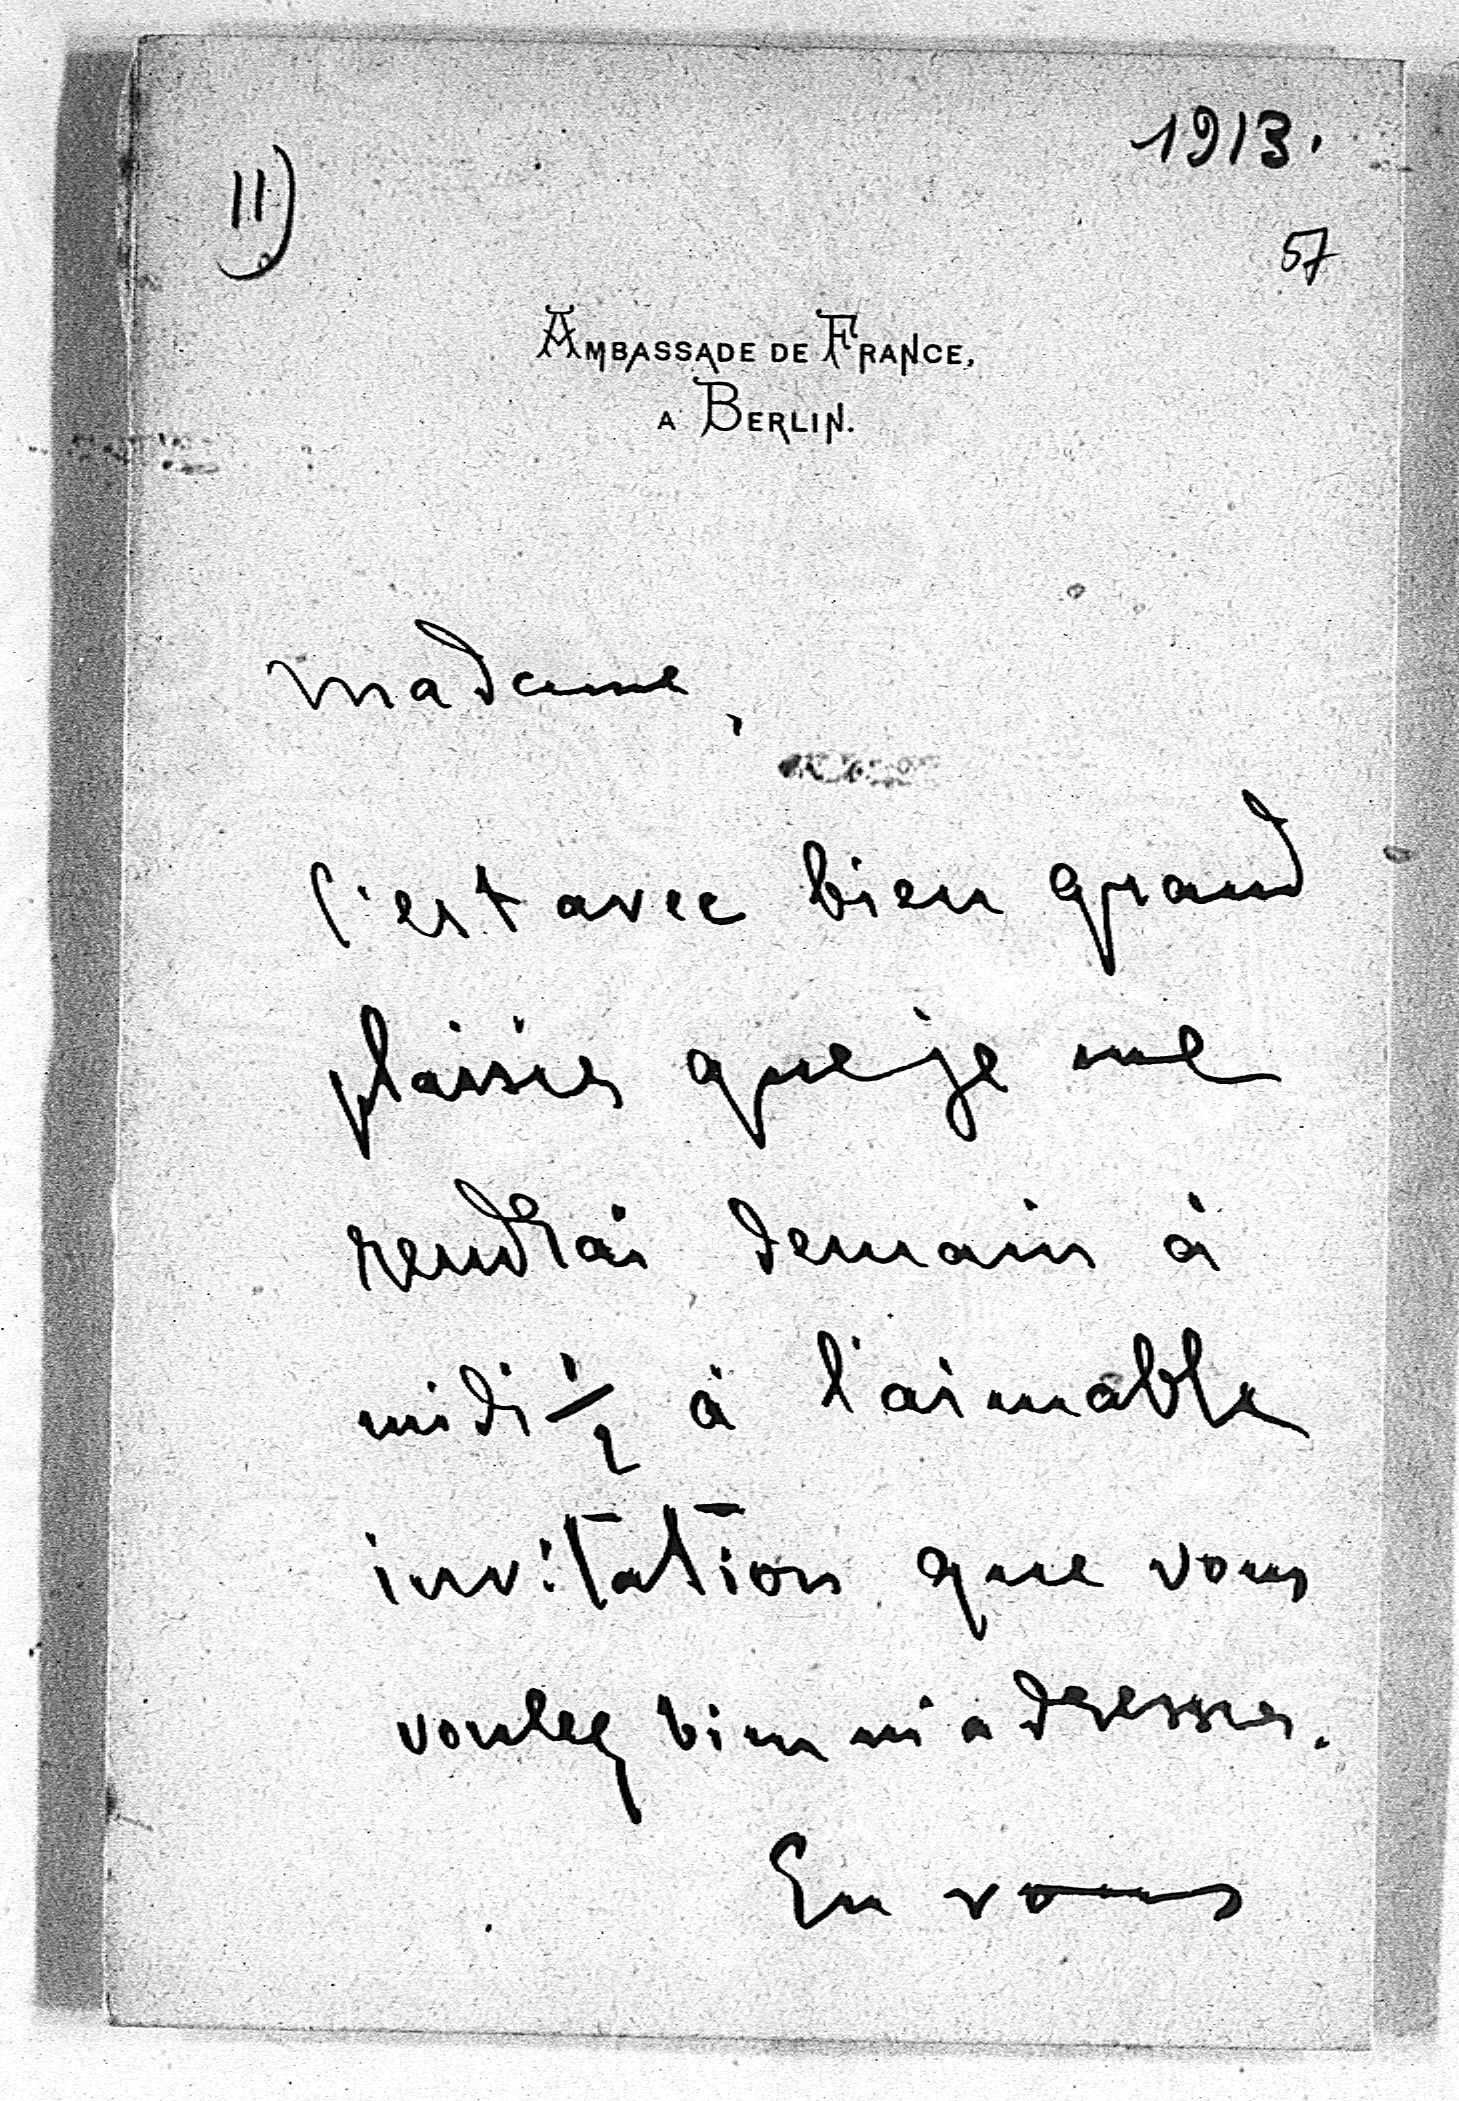 1913.
11)
57
AMBASSADE DE FRANCE,
A BERLIN.
Madame,
C'est avec bien grand
plaisir que je me
rendrai demain à
midi 1/2 à l'aimable
invitation que vous
voulez bien m'adresser.
En vous